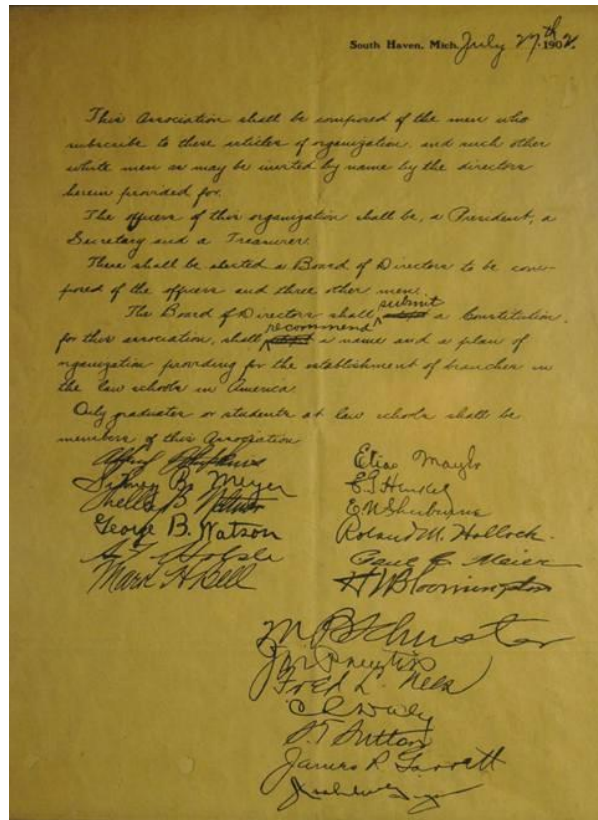 South Haven, Mich. July 27th 1902.
This Association shall be composed of the men who
subscribe to these articles of organization and such other
white men as may be invited by name by the directors
herein provided for.
The officers of this organization shall be, a President, a
Secretary and a Treasurer.
There shall be elected a Board of Directors to be com-
posed of the officers and three other men.
The Board of Directors shall submit a Constitution
for this association, shall recommend a name and a plan of
organization providing for the establishment of branches in
the law schools in America.
Only graduates or students at law schools shall be
members of this Association
Sidney B. Meyer
George B. Watson
Mark A Bell
Elias Mayls
E. G. Henkel
E. W. Sherburne
Roland M. Hollock.
Paul E. Meier
H W Bloomington
M P Shuster
Fred L.
S. T. Sutton
James R Garrett